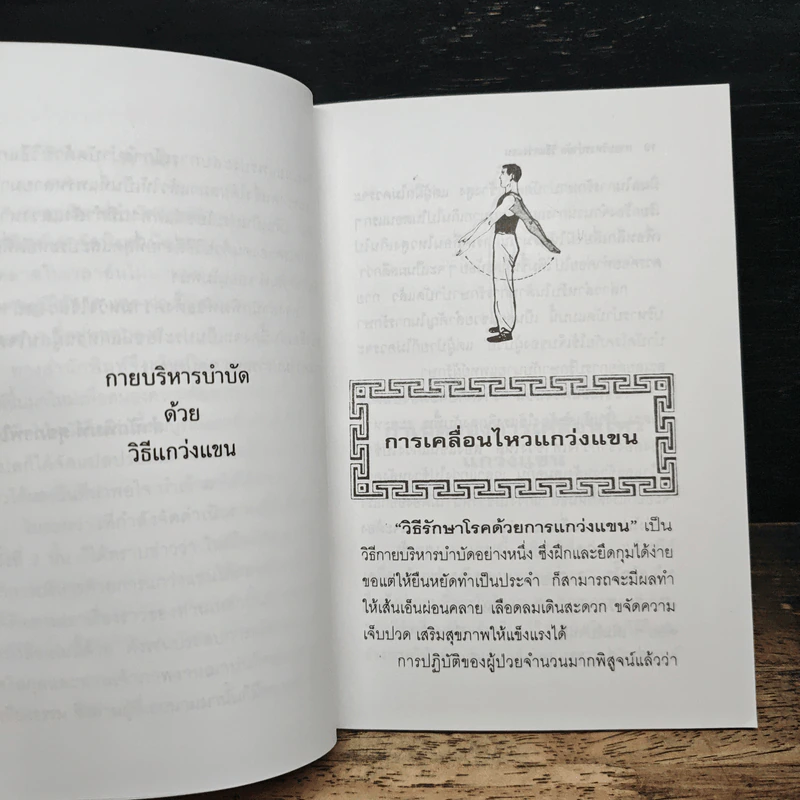 กายบริหารบำบัด
ด้วย
วิธีแกว่งแขน
การเคลื่อนไหวแกว่งแขน
“วิธีรักษาโรคด้วยการแกว่งแขน” เป็น
วิธีกายบริหารบำบัดอย่างหนึ่ง ซึ่งฝึกและยึดกุมได้ง่าย
ขอแต่ให้ยืนหยัดทำเป็นประจำ ก็สามารถจะมีผลทำ
ให้เส้นเอ็นผ่อนคลาย เลือดลมเดินสะดวก ขจัดความ
เจ็บปวด เสริมสุขภาพให้แข็งแรงได้
การปฏิบัติของผู้ป่วยจำนวนมากพิสูจน์แล้วว่า